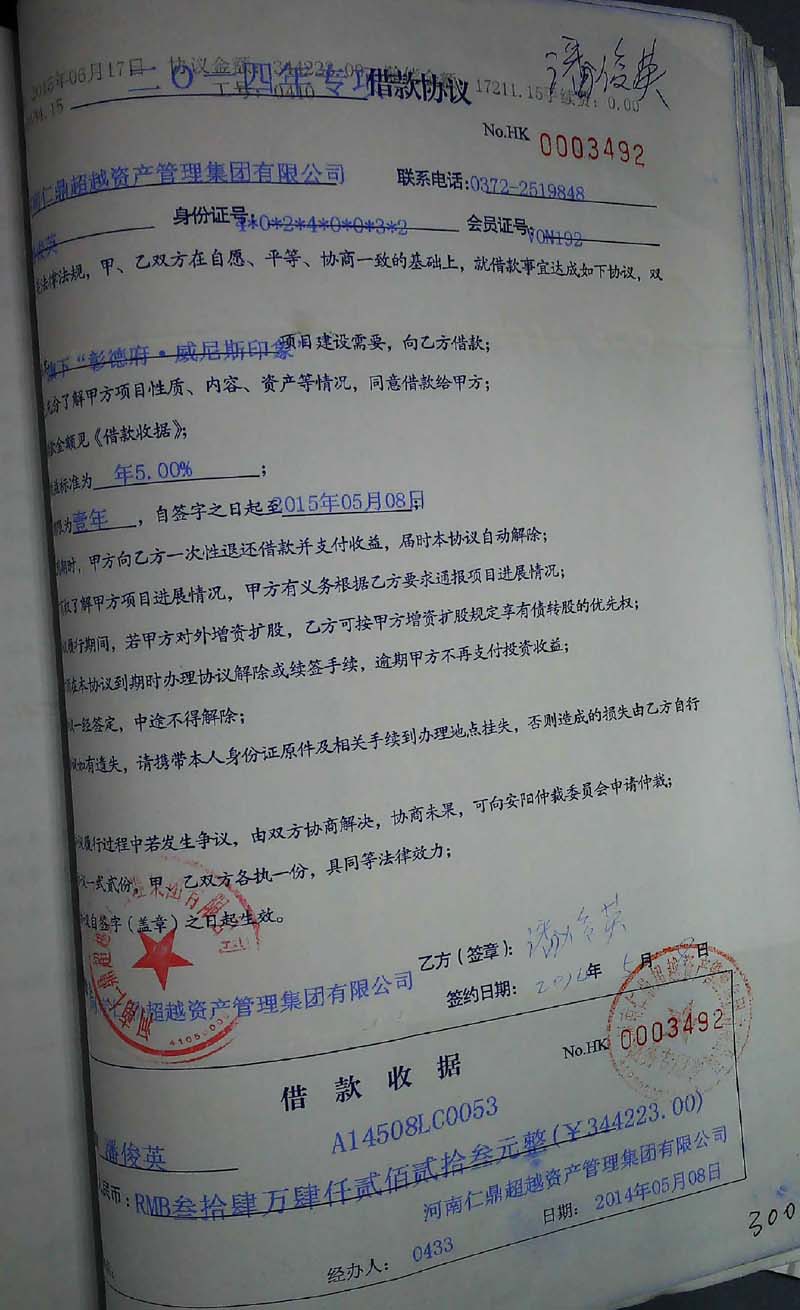 2015年06月17日 协议金额:344223.00 17211.15手续费:0.00
工号:0410
二〇一四年专项借款协议
潘俊英
No.HK 0003492
仁鼎超越资产管理集团有限公司 联系电话:0372-2519848
俊英 身份证号:1*0*2*4*0*0*3*2 会员证号:VON192
法律法规，甲、乙双方在自愿、平等、协商一致的基础上，就借款事宜达成如下协议，双
旗下“彰德府·威尼斯印象”项目建设需要，向乙方借款；
充分了解甲方项目性质、内容、资产等情况，同意借款给甲方；
金额见《借款收据》；
标准为 年5.00% ；
限为壹年 ，自签字之日起至2015年05月08日；
期时，甲方向乙方一次性退还借款并支付收益，届时本协议自动解除；
权了解甲方项目进展情况，甲方有义务根据乙方要求通报项目进展情况；
履行期间，若甲方对外增资扩股，乙方可按甲方增资扩股规定享有债转股的优先权；
在本协议到期时办理协议解除或续签手续，逾期甲方不再支付投资收益；
一经签定，中途不得解除；
如有遗失，请携带本人身份证原件及相关手续到办理地点挂失，否则造成的损失由乙方自行
履行过程中若发生争议，由双方协商解决，协商未果，可向安阳仲裁委员会申请仲裁；
一式贰份，甲、乙双方各执一份，具同等法律效力；
自签字(盖章)之日起生效。
乙方(签章)：潘俊英
超越资产管理集团有限公司
签约日期： 年 5月 8日
借款收据
No.HK 0003492
A14508LC0053
潘俊英
民币：RMB叁拾肆万肆仟贰佰贰拾叁元整(￥344223.00)
河南仁鼎超越资产管理集团有限公司
经办人： 0433 日期： 2014年05月08日
300